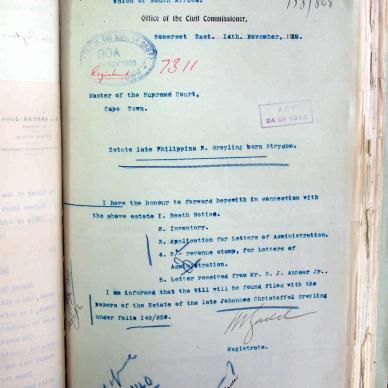 Union of South Africa.
Office of the Civil Commissioner,
Somerset East. 14th. November,
GOA
NOV 1918
Registered
7311
Master of the Supreme Court,
Cape Town.
ACT
24 OF 1913.
Estate late Philippina R. Greyling born Strydom.
I have the honour to forward herewith in connection with
the above estate 1. Death Notice.
2. Inventory.
3. Application for Letters of Administration.
4. 5/- revenue stamp, for Letters of
Administration.
5. Letter received from Mr. S. J. Annear Jr..
I am informed that the Will will be found filed with the
papers of the Estate of the late Johannes Christoffel Greyling
under folio 140/259.
Magistrate.